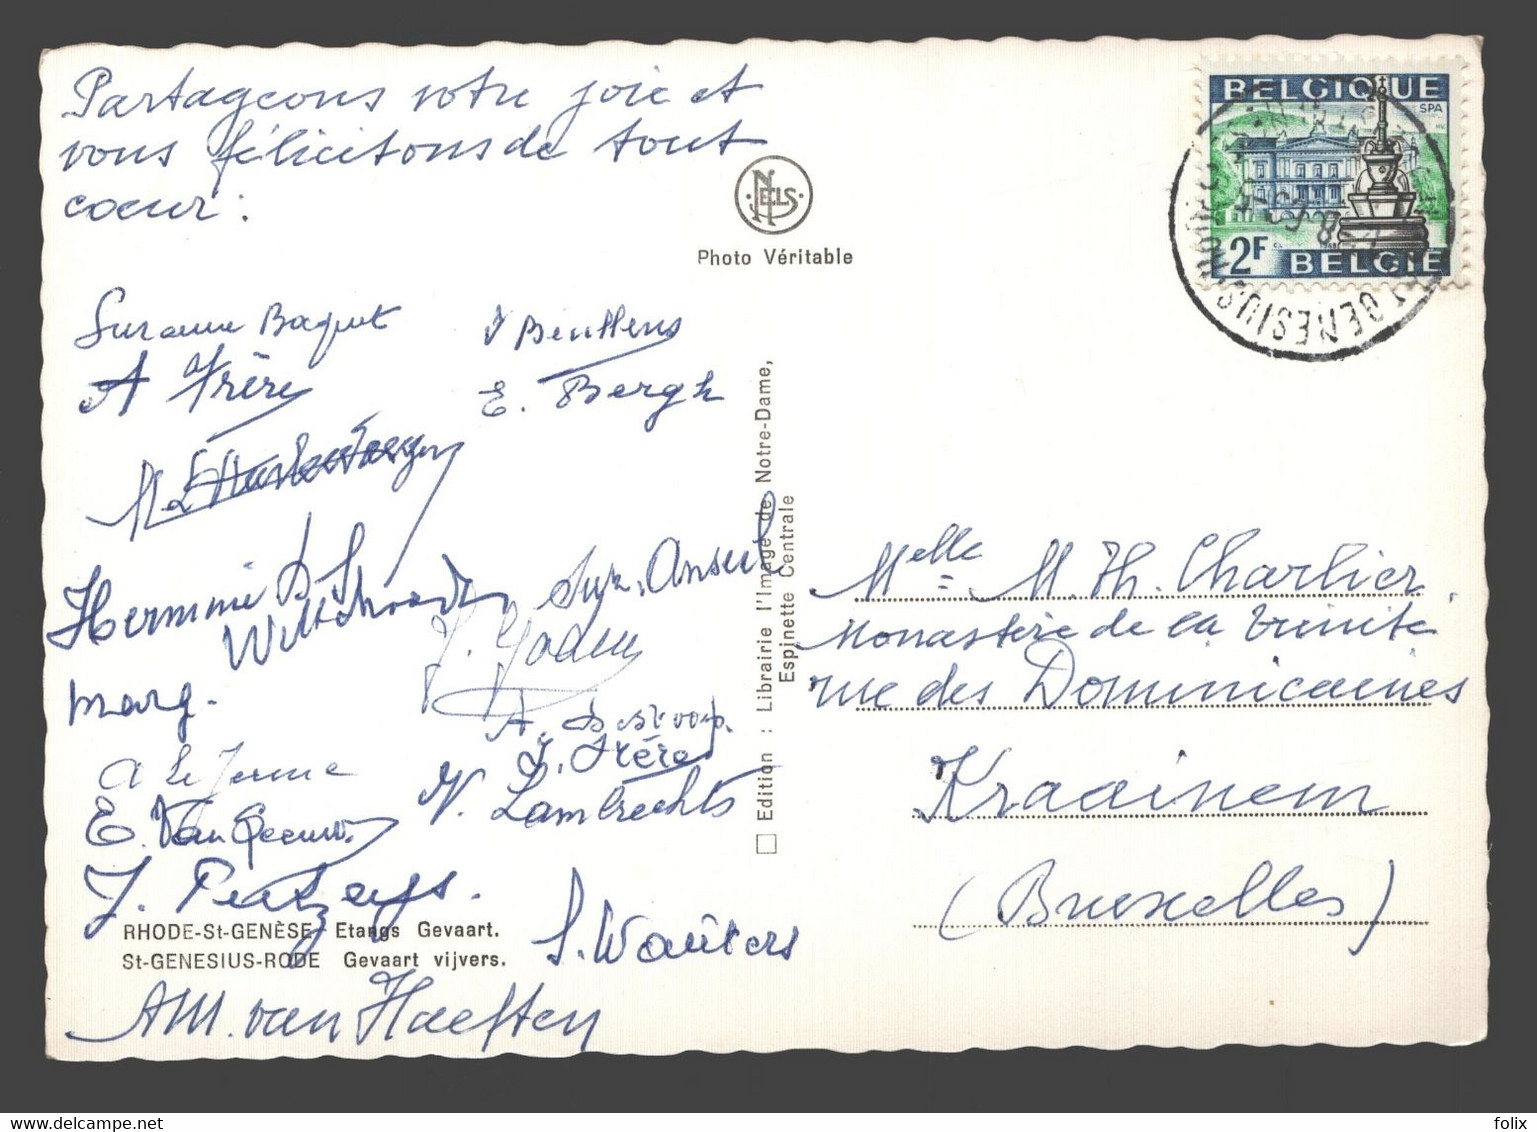 Partageons votre joie et
vous félicitons de tout
coeur :
Suzanne Baquet
A Frère
Beullens
E. Bergh
Hermine
Suz. Anseel
Marg.
A. Destroop.
J. Frère
N. Lambrechts
A Le Jeune
E. Van
J. Peetzeys.
S. Wauters
AM. van Haeften
RHODE-St-GENÈSE Etangs Gevaart.
St-GENESIUS-RODE Gevaart vijvers.
NELS
Photo Véritable
Edition : Librairie l'Image de Notre-Dame,
Espinette Centrale
BELGIQUE
SPA
2F
1968
BELGIE
GENESIUS
Melle M. Th. Charlier.
Monastère de la Trinité
rue des Dominicaines
Kraainem
(Bruxelles)
felix
www.delcampe.net